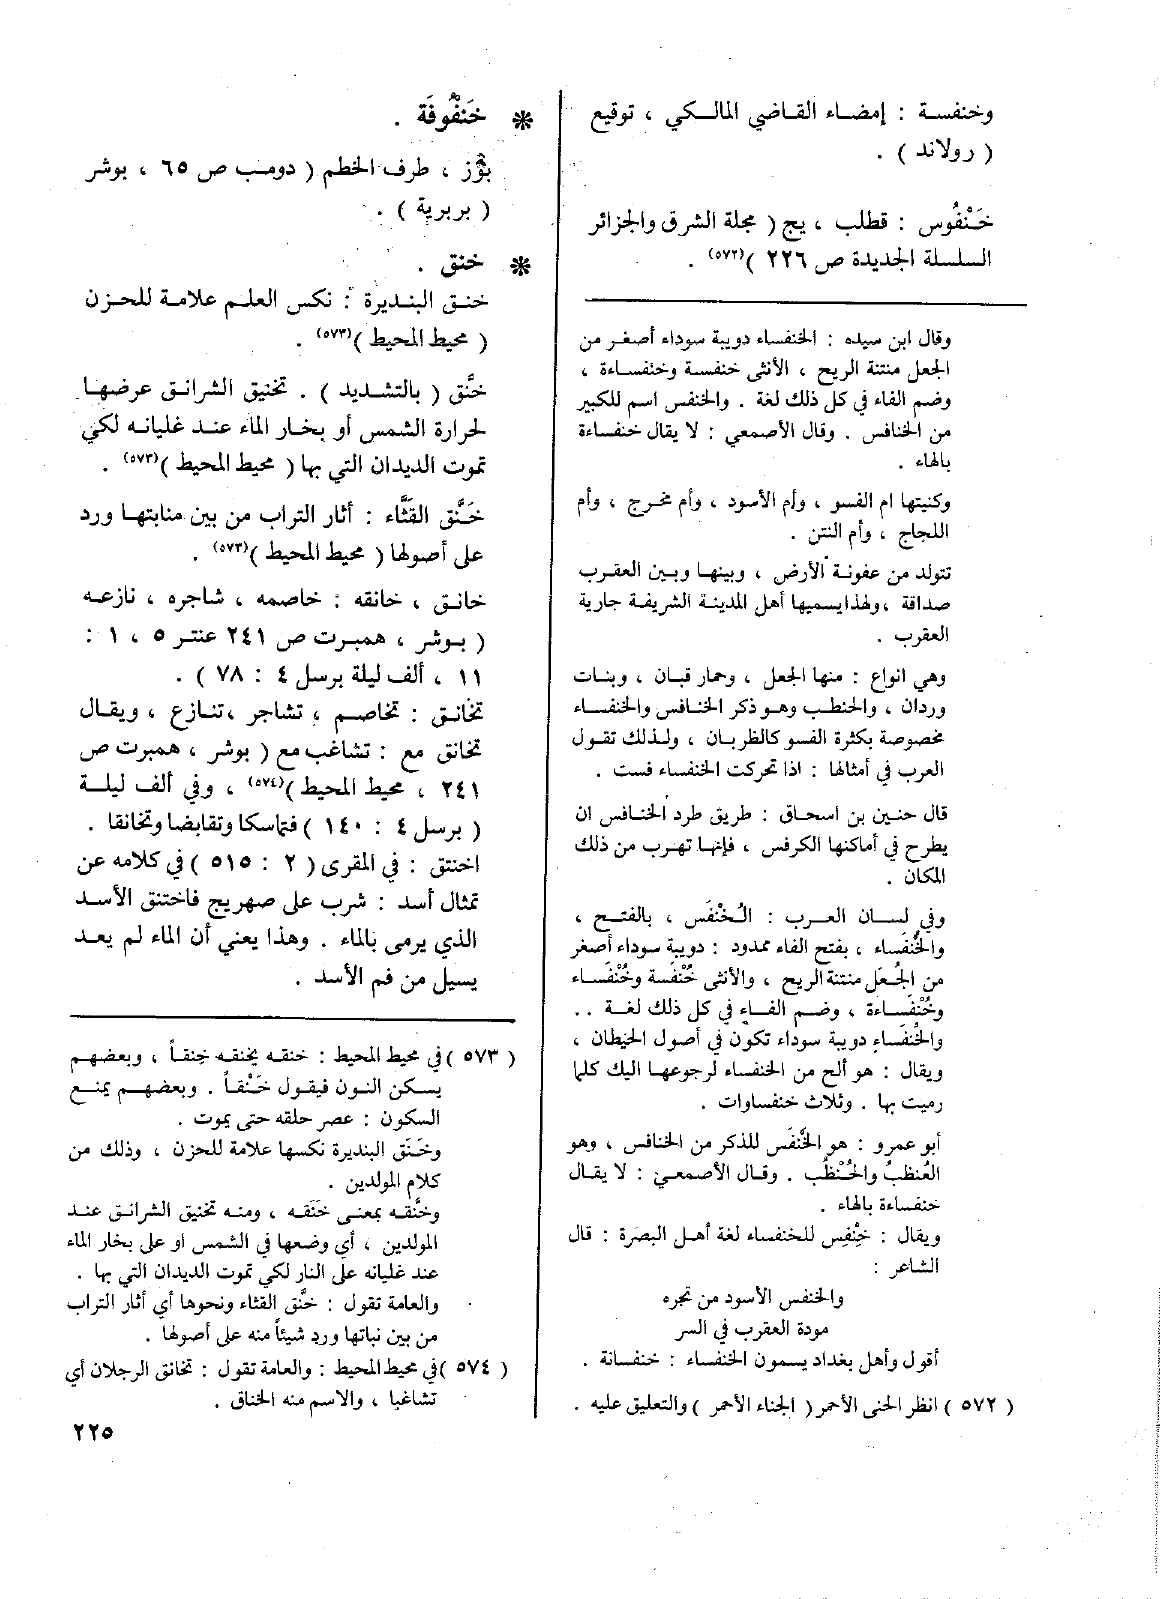 وخنفسة : إمضاء القاضي المالكي ، توقيع
( رولاند ) .
خَنْفُوس : قطلب ، يج ( مجلة الشرق والجزائر
السلسلة الجديدة ص ٢٢٦ )(٥٧٢) .
وقال ابن سيده : الخنفساء دويبة سوداء أصغر من
الجعل منتنة الريح ، الأنثى خنفسة وخنفساءة ،
وضم الفاء في كل ذلك لغة . والخنفس اسم للكبير
من الخنافس . وقال الأصمعي : لا يقال خنفساءة
بالهاء .
وكنيتها ام الفسو ، وأم الأسود ، وأم مخرج ، وأم
اللجاج ، وأم النتن .
تتولد من عفونة الأرض ، وبينها وبين العقرب
صداقة ،ولهذا يسميها أهل المدينة الشريفة جارية
العقرب .
وهي انواع : منها الجعل ، وحمار قبان ، وبنات
وردان ، والخنطب وهو ذكر الخنافس والخنفساء
مخصوصة بكثرة الفسو كالظربان ، ولذلك تقول
العرب في أمثالها : اذا تحركت الخنفساء فست .
قال حنين بن اسحاق : طريق طرد الخنافس ان
يطرح في أماكنها الكرفس ، فإنها تهرب من ذلك
المكان .
وفي لسان العرب : الخُنْفَس ، بالفتح ،
والخُنْفَساء ، بفتح الفاء ممدود : دويبة سوداء أصغر
من الجُعَل منتنة الريح ، والأنثى خُنْفَسة وخُنْفَساء
وخُنْفَساءة ، وضم الفاء في كل ذلك لغة . .
والخُنْفَساء دويبة سوداء تكون في أصول الحيطان ،
ويقال : هو ألح من الخنفساء لرجوعها اليك كلما
رميت بها . وثلاث خنفساوات .
أبو عمرو : هو الخُنْفَس للذكر من الخنافس ، وهو
العُنظبُ والحُنْظُب . وقال الأصمعي : لا يقال
خنفساءة بالهاء .
ويقال : خِنْفِس للخنفساء لغة أهل البصرة : قال
الشاعر :
والخنفس الأسود من نجره
مودة العقرب في السر
أقول وأهل بغداد يسمون الخنفساء : خنفسانة .
( ٥٧٢ ) انظر الحنى الأحمر ( الجناء الأحمر ) والتعليق عليه .
* خَنْفُوفَة .
بَوُّز ، طرف الخطم ( دومب ص ٦٥ ، بوشر
( بربرية ) .
* خنق .
خنق البنديرة : نكس العلم علامة للحزن
( محيط المحيط )(٥٧٣) .
خنَّق ( بالتشديد ) . تخنيق الشرانق عرضها
لحرارة الشمس أو بخار الماء عند غليانه لكي
تموت الديدان التي بها ( محيط المحيط )(٥٧٣) .
خَنَّق القثَّاء : أثار التراب من بين منابتها ورد
على أصولها ( محيط المحيط )(٥٧٣) .
خانق ، خانقه : خاصمه ، شاجره ، نازعه
( بوشر ، همبرت ص ٢٤١ عنتر ٥ ، ١ :
١١ ، ألف ليلة برسل ٤ : ٧٨ ) .
تخانق : تخاصم ، تشاجر ،تنازع ، ويقال
تخانق مع : تشاغب مع ( بوشر ، همبرت ص
٢٤١ ، محيط المحيط )(٥٧٤) ، وفي ألف ليلة
( برسل ٤ : ١٤٠ ) فتماسكا وتقابضا وتخانقا .
اختنق : في المقرى ( ٢ : ٥١٥ ) في كلامه عن
تمثال أسد : شرب على صهريج فاختنق الأسد
الذي يرمى بالماء . وهذا يعني أن الماء لم يعد
يسيل من فم الأسد .
( ٥٧٣ ) في محيط المحيط : خنقه يخنقه خنِقاً ، وبعضهم
يسكن النون فيقول خَنْقاً . وبعضهم يمنع
السكون : عصر حلقه حتى يموت .
وخَنَق البنديرة نكسها علامة للحزن ، وذلك من
كلام المولدين .
وخنَّقه بمعنى خَنَقه ، ومنه تخنيق الشرانق عند
المولدين ، أي وضعها في الشمس او على بخار الماء
عند غليانه على النار لكي تموت الديدان التي بها .
والعامة تقول : خنَّق القثاء ونحوها أي أثار التراب
من بين نباتها ورد شيئاً منه على أصولها .
( ٥٧٤ ) في محيط المحيط : والعامة تقول : تخانق الرجلان أي
تشاغبا ، والاسم منه الخناق .
٢٢٥